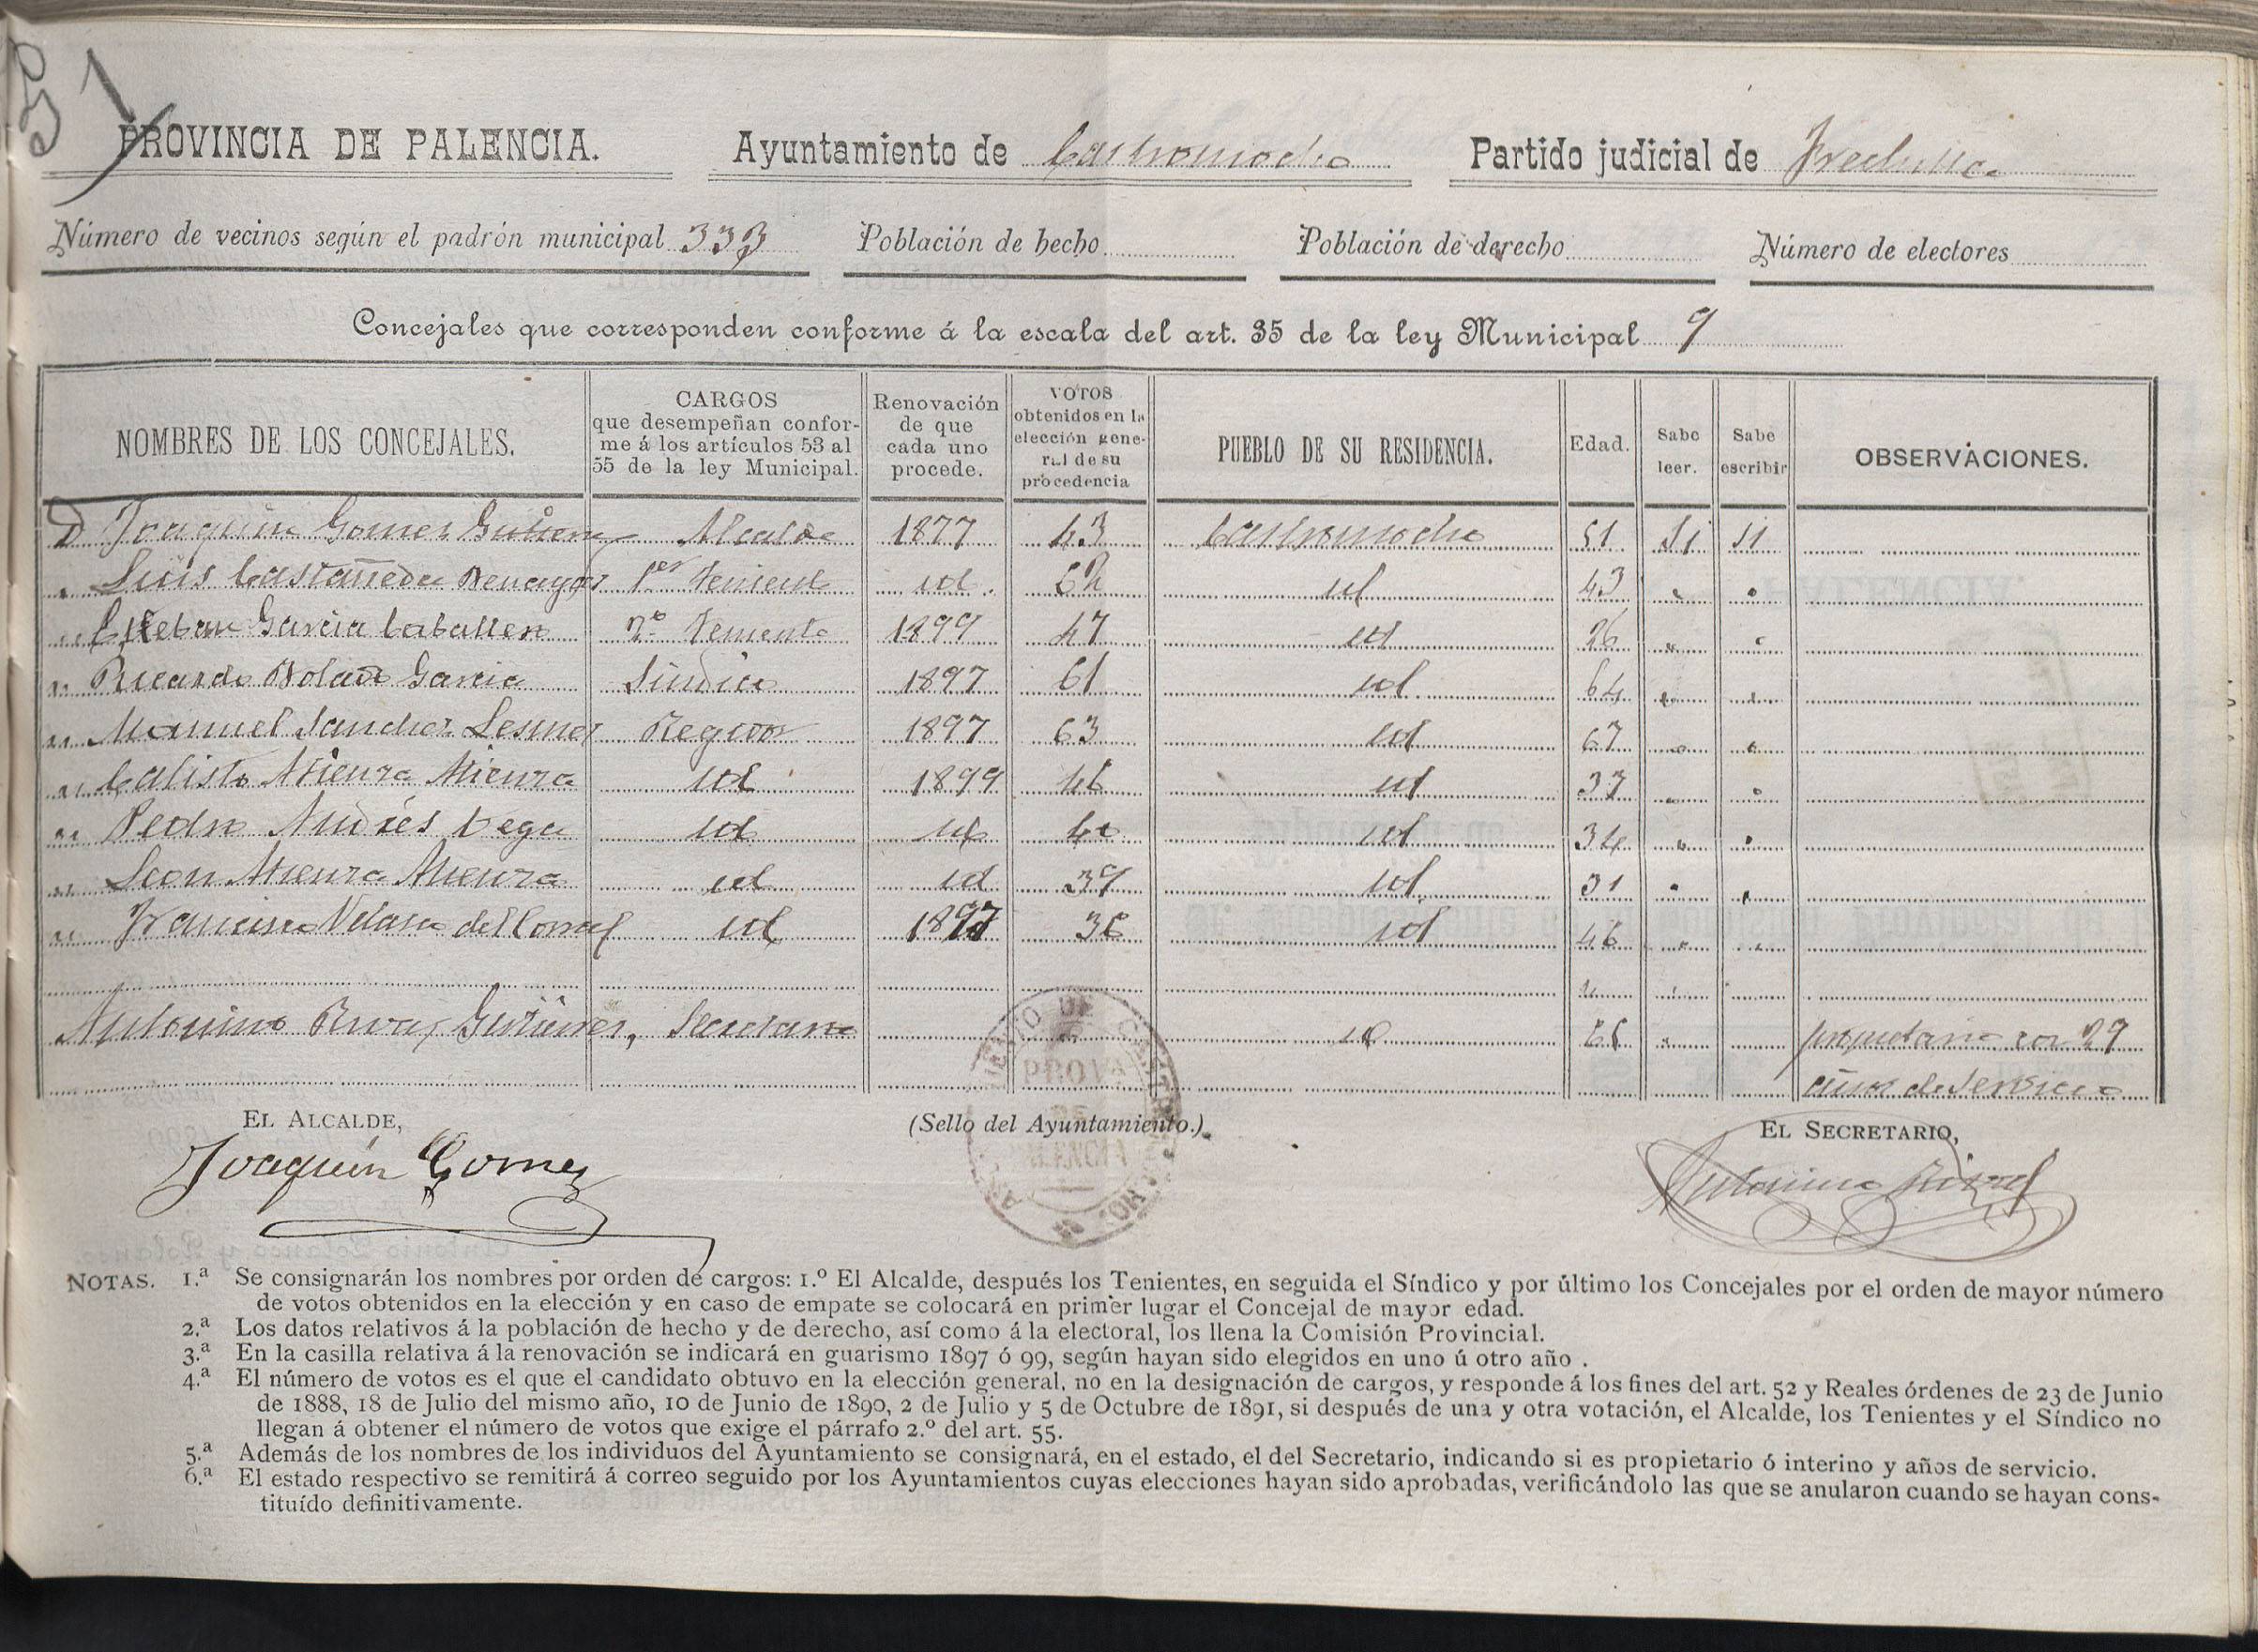 51
PROVINCIA DE PALENCIA. Ayuntamiento de Castromocho Partido judicial de Frechilla
Número de vecinos según el padrón municipal 333 Población de hecho Población de derecho Número de electores
Concejales que corresponden conforme á la escala del art. 35 de la ley Municipal 9
NOMBRES DE LOS CONCEJALES. CARGOS que desempeñan conforme á los artículos 53 al 55 de la ley Municipal. Renovación de que cada uno procede. VOTOS obtenidos en la elección general de su procedencia PUEBLO DE SU RESIDENCIA. Edad. Sabe leer. Sabe escribir OBSERVACIONES.
D Joaquin Gomez Alcalde 1877 43 Castromocho 51 Si si
" Luis Castañeda 1er Teniente id 62 id 43 " "
" Esteban Garcia Caballero 2º Teniente 1899 47 id 26 " "
" Ricardo Garcia Sindico 1897 61 id 64 " "
" Manuel Sanchez Regidor 1897 63 id 67 " "
" Calisto Atienza Atienza id 1899 46 id 37 " "
" Pedro Andrés Vega id id 40 id 34 " "
" Leon Atienza Atienza id id 39 id 31 " "
" Francisco Velasco del Corral id 1897 36 id 46 " "
Antonino Gutierrez, Secretario id " propietario con 29
años de servicio
EL ALCALDE, (Sello del Ayuntamiento.) EL SECRETARIO,
Joaquin Gomez Antonino
NOTAS. 1.ª Se consignarán los nombres por orden de cargos: 1.º El Alcalde, después los Tenientes, en seguida el Síndico y por último los Concejales por el orden de mayor número
de votos obtenidos en la elección y en caso de empate se colocará en primer lugar el Concejal de mayor edad.
2.ª Los datos relativos á la población de hecho y de derecho, así como á la electoral, los llena la Comisión Provincial.
3.ª En la casilla relativa á la renovación se indicará en guarismo 1897 ó 99, según hayan sido elegidos en uno ú otro año .
4.ª El número de votos es el que el candidato obtuvo en la elección general, no en la designación de cargos, y responde á los fines del art. 52 y Reales órdenes de 23 de Junio
de 1888, 18 de Julio del mismo año, 10 de Junio de 1890, 2 de Julio y 5 de Octubre de 1891, si después de una y otra votación, el Alcalde, los Tenientes y el Síndico no
llegan á obtener el número de votos que exige el párrafo 2.º del art. 55.
5.ª Además de los nombres de los individuos del Ayuntamiento se consignará, en el estado, el del Secretario, indicando si es propietario ó interino y años de servicio.
6.ª El estado respectivo se remitirá á correo seguido por los Ayuntamientos cuyas elecciones hayan sido aprobadas, verificándolo las que se anularon cuando se hayan cons-
tituído definitivamente.